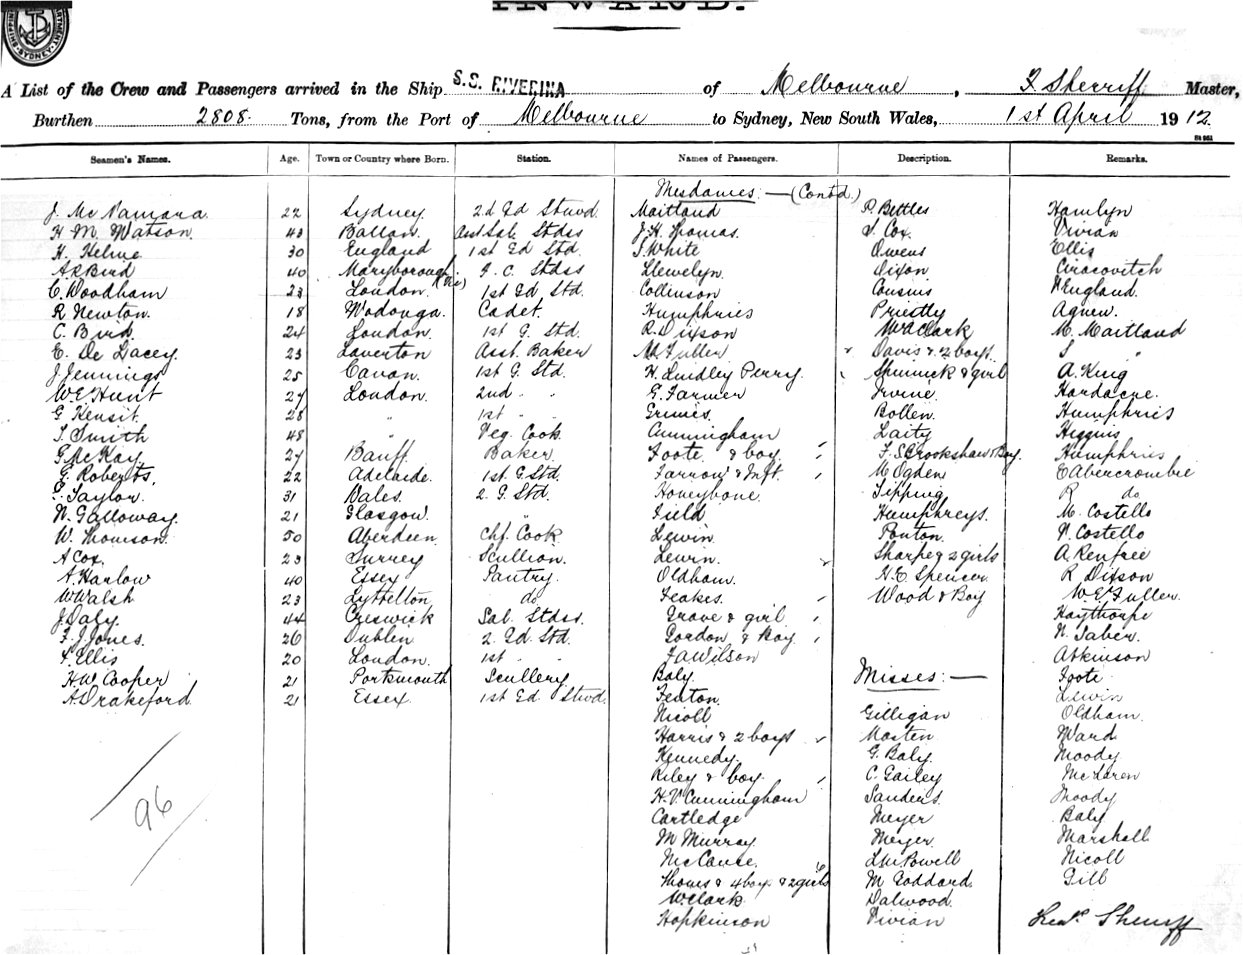 INWARD.
A List of the Crew and Passengers arrived in the Ship S.S. RIVERINA of Melbourne, F Sherriff Master,
Burthen 2808. Tons, from the Port of Melbourne to Sydney, New South Wales, 1st April 1912
Seamen's Names. Age. Town or Country where Born. Station. Names of Passengers. Description. Remarks.
Mesdames:—(Contd.)
J. McNamara 22 Sydney 2d Gd Stwd. Maitland P. Bettles Hamlyn
H. M. Watson. 43 Ballan. Asst Sal. Stdss J. H. Thomas. S. Cox. Vivian
H. Helme 30 England 1st Gd Std. J. White Owens Ellis
A R Bird 40 Maryborough (Vic) F. C. Stdss Llewelyn. Dixon Ciracovitch
C. Woodham 23 London 1st Gd Std. Collinson Cousins N England.
R Newton. 18 Wodonga. Cadet. Humphries Priestly Agnew.
C. Bird 24 London. 1st G. Std. R. Dixson W A Clark M. Maitland
E. De Lacey. 23 Laverton Asst. Baker Fuller Davis & 2 boys. S "
J Jennings 25 1st G. Std. H. Lindley Perry. & girl A. King
W E Hunt 27 London. 2nd " " G. Farmer Irvine. Hardacre.
G Kensit. 28 " 1st " " Grimes. Bollen. Humphries
T. Smith 48 " Veg. Cook. Cunningham Laity Higgins
G McKay. 27 Banff Baker. Foote & boy F. S. Brookshaw & Boy Humphries
G. Roberts. 22 Adelaide. 1st G. Std. Farrow & Inft. M Ogden E Abercrombie
Taylor. 31 Dales. 2. G. Std. Honeybone. Tipping R do
N. Galloway. 21 Glasgow. " Field Humphreys. M. Costello
W. Thomson. 50 Aberdeen Chf. Cook Lewin. Ponton. N. Costello
A Cox. 23 Surrey Scullion. Lewin. Sharpe & 2 girls A. Renfree
A. Harlow 40 Essex Pantry. Oldham. H. E. Spencer. R Dixson
W Walsh 23 Lyttelton do Feakes. Wood & Boy W. E. Fuller.
J Daly. 44 Creswick Sal. Stdss. Grove & girl Haythorpe
F. J. Jones. 26 Dublin 2. Gd Std. Gordon & Boy N. Taber.
F. Ellis 20 London. 1st " " J A Wilson Atkinson
H W Cooper 21 Portsmouth Scullery Baly. Misses:— Foote
A. Drakeford. 21 Essex. 1st Gd. Stwd. Fenton. Lewin
Nicoll Gilligan Oldham.
Harris & 2 boys Masten Ward
Kennedy. G. Baly. Moody
Riley & boy. C. Gailey McLaren
H. V. Cunningham Sanders. Moody
96
Cartledge Meyer Baly
M Murray Meyer. Marshall.
McCance. L M Powell Nicoll
Thomes & 4 boys & 2 girls M Goddard. Gill
W Clark Dalwood.
Hopkinson Vivian Sherriff